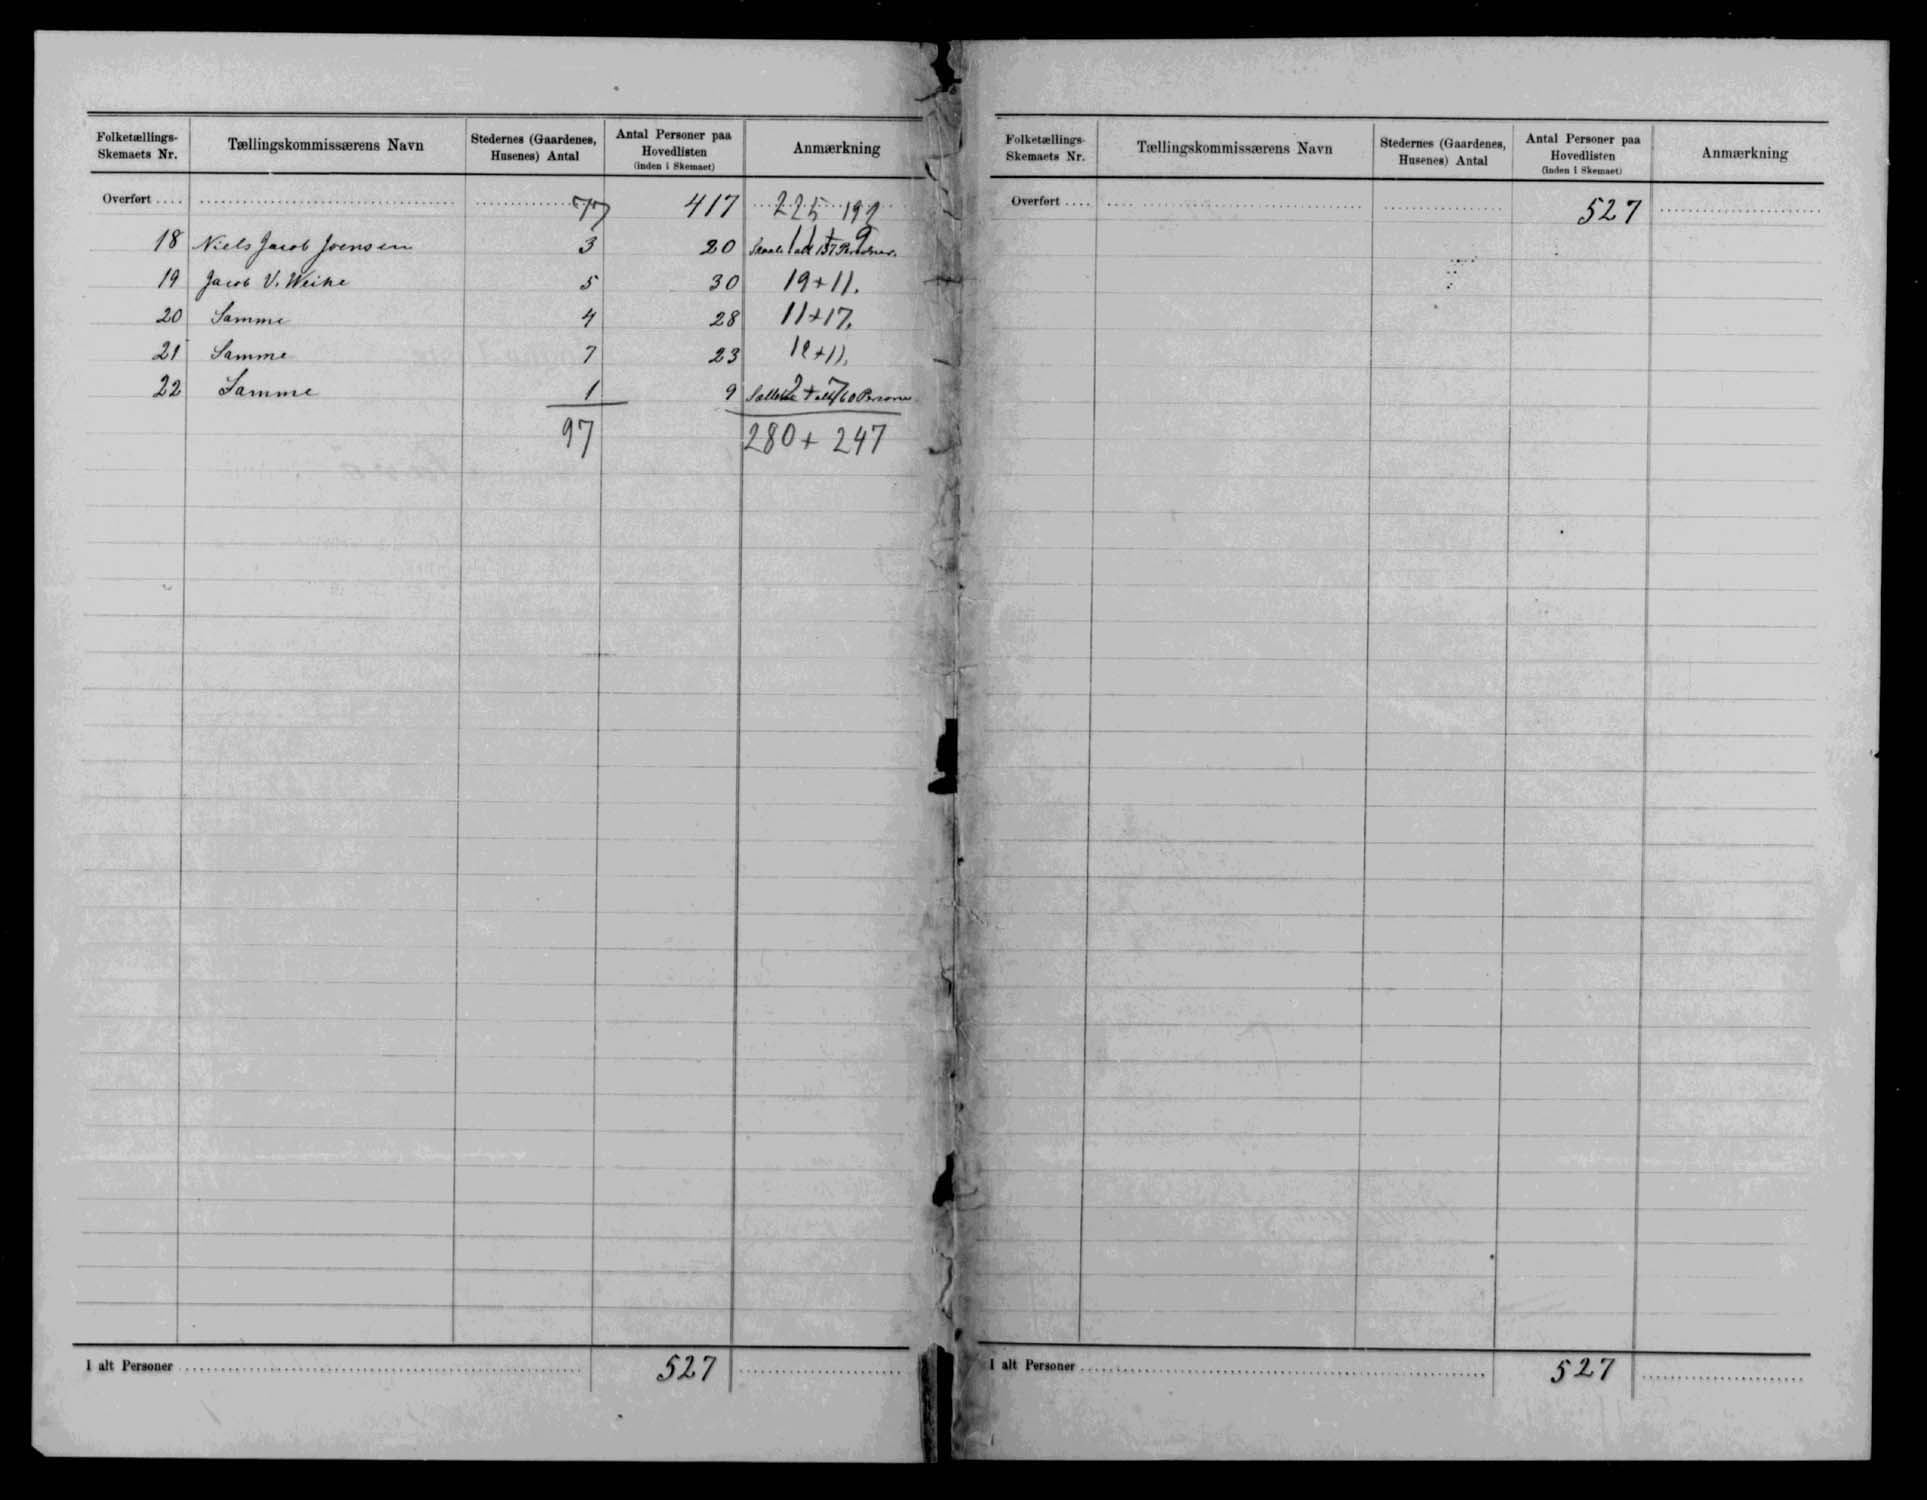 Folketællings-Skemaets Nr. Tællingskommissærens Navn Stedernes (Gaardenes, Husenes) Antal Antal Personer paa Hovedlisten (inden i Skemaet) Anmærkning
Overført .... 77 417 225 192
18 Niels Jacob Joensen 3 20 11+9 157 Personer.
19 Jacob V. Weihe 5 30 19+11.
20 Samme 4 28 11+17.
21 Samme 7 23 12+11.
22 Samme 1 9 2+7 60 Personer
97 280+247
I alt Personer 527
Folketællings-Skemaets Nr. Tællingskommissærens Navn Stedernes (Gaardenes, Husenes) Antal Antal Personer paa Hovedlisten (inden i Skemaet) Anmærkning
Overført .... 527
I alt Personer 527